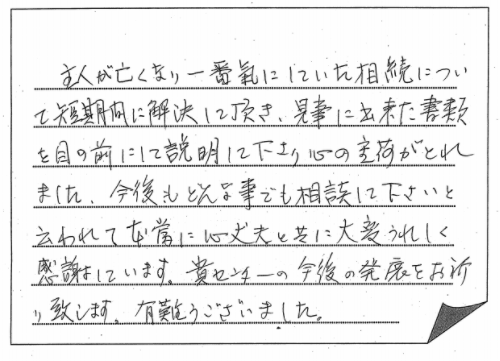 主人が亡くなり一番気にしていた相続につい
て短期間に解決して頂き、見事に出来た書類
を目の前にして説明して下さり心の重荷がとれ
ました、今後もどんな事でも相談して下さいと
云われて本当に心丈夫と共に大変うれしく
感謝しています。貴センターの今後の発展をお祈
り致します。有難うございました。